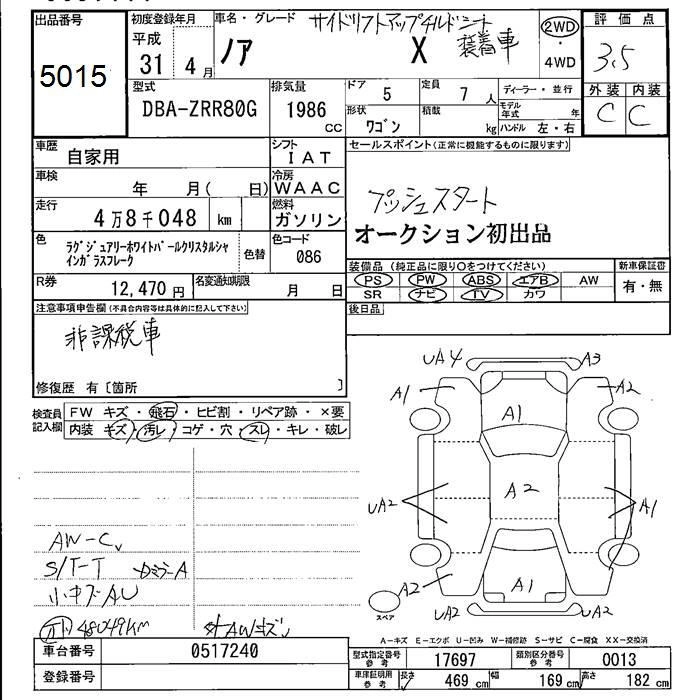 出品番号 初度登録年月 車名・グレード サイドリフトアップチルトシート 装着車 2WD・4WD 評価点
5015 平成 31 4月 ノア X 3.5
型式 排気量 ドア 5 定員 7人 ディーラー・並行 外装 内装
DBA-ZRR80G 1986 CC 形状 ワゴン 積載 kg モデル年式 年 C C
ハンドル 左・右
車歴 自家用 シフト IAT セールスポイント(正常に機能するものに限ります)
車検 年 月( 日) 冷房 WAAC
走行 4万8千048 km 燃料 ガソリン プッシュスタート
オークション初出品
色 ラグジュアリーホワイトパールクリスタルシャインガラスフレーク 色替 色コード 086
装備品(純正品に限り○をつけてください) 新車保証書
R券 12,470円 名変通知期限 月 日 PS PW ABS エアB AW 有・無
SR ナビ TV カワ
注意事項申告欄(不具合内容等は具体的に記入して下さい) 後日品
非課税車
修復歴 有〔箇所 〕
検査員記入欄 FW キズ・飛石・ヒビ割・リペア跡・×要
内装 キズ・汚レ・コゲ・穴・スレ・キレ・破レ
UA4 A3
A1 A2
A1
UA2 A2 A1
A2 A1
UA2 UA2
スペア
AW-C
S/T-T ドミラーA
小キズAU
48049km 外AWキズ
A-キズ E-エクボ U-凹み W-補修跡 S-サビ C-腐食 XX-交換済
車台番号 0517240 型式指定番号 参考 17697 類別区分番号 参考 0013
登録番号 車庫証明用 参考 長さ 469 cm 幅 169 cm 高さ 182 cm